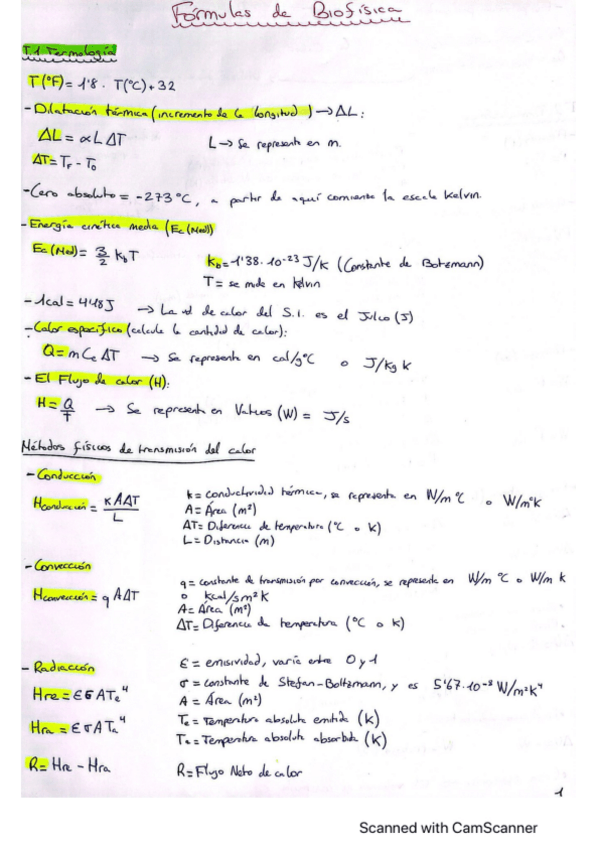 Fórmulas de Biofísica
T.1 Termología
T(ºF) = 1'8 · T(ºC) + 32
- Dilatación térmica (incremento de la longitud) → ΔL:
ΔL = αLΔT L → Se representa en m.
ΔT = Tf - T0
- Cero absoluto = -273ºC, a partir de aquí comienza la escala Kelvin.
- Energía cinética media (Ec(Med))
Ec(Med) = 3/2 kbT kb = 1'38·10-23 J/K (Constante de Botzmann)
T = se mide en kelvin
- 1cal = 4'18J → La ud de calor del S.I. es el Julio (J)
- Calor específico (calcula la cantidad de calor):
Q = m Ce ΔT → Se representa en cal/gºC o J/Kg k
- El Flujo de calor (H):
H = Q/T → Se representa en Vatios (W) = J/s
Métodos físicos de transmisión del calor
- Conducción
Hconducción = KAΔT/L k = conductividad térmica, se representa en W/mºC o W/mºK
A = Área (m²)
ΔT = Diferencia de temperatura (ºC o K)
L = Distancia (m)
- Convección
Hconvección = q AΔT q = constante de transmisión por convección, se representa en W/m ºC o W/m k
o kcal/sm²K
A = Área (m²)
ΔT = Diferencia de temperatura (ºC o k)
- Radiacción ε = emisividad, varía entre 0 y 1
Hre = εσATe⁴ σ = constante de Stefan-Boltzmann, y es 5'67·10-8 W/m²K⁴
A = Área (m²)
Hra = εσATa⁴ Te = Temperatura absoluta emitida (K)
Ta = Temperatura absoluta absorbida (K)
R = Hre - Hra R = Flujo Neto de calor
1
Scanned with CamScanner